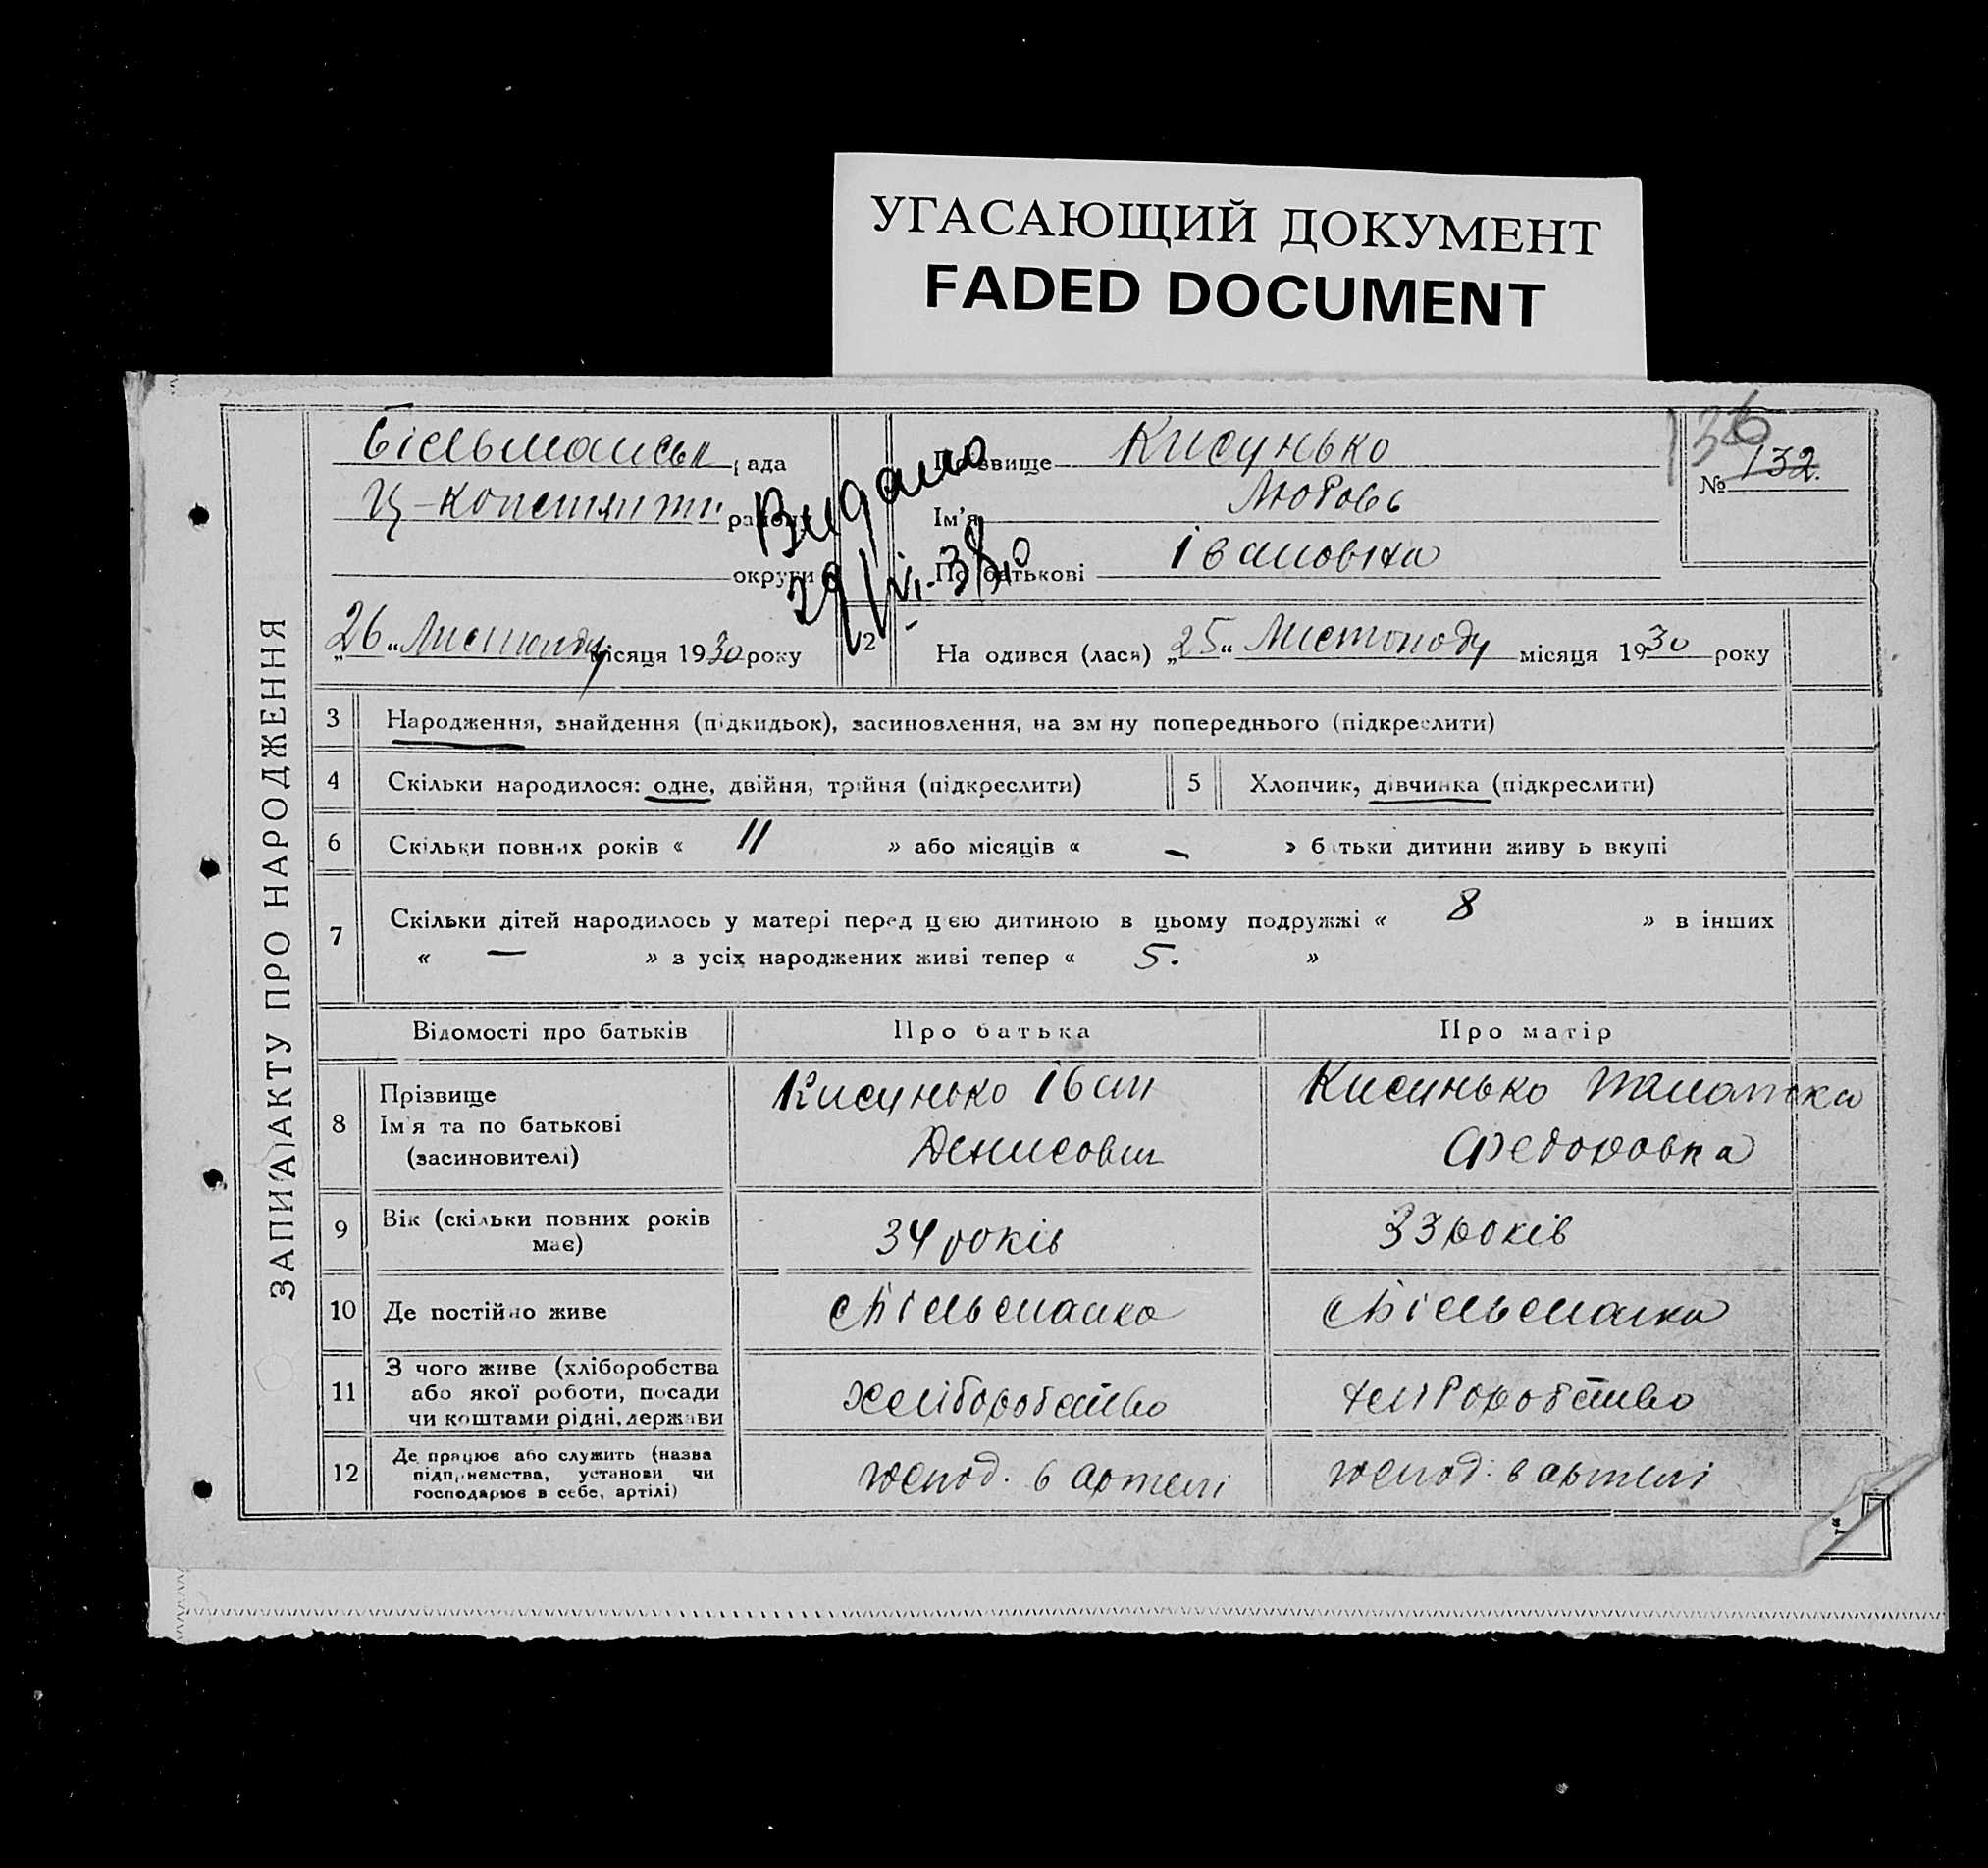 УГАСАЮЩИЙ ДОКУМЕНТ
FADED DOCUMENT
ЗАПИ(А) АКТУ ПРО НАРОДЖЕННЯ
Більманськ рада
Ц-Констянти району
округи
Видано
29/VI-38
136
№ 132.
Прізвище Кисунько
Ім'я Любовь
По батькові Івановна
„26“ Листопаду місяця 1930 року
2 На одився (лася) „25“ Листопаду місяця 1930 року
3 Народження, знайдення (підкидьок), засиновлення, на зм ну попереднього (підкреслити)
4 Скільки народилося: одне, двійня, трійня (підкреслити)
5 Хлопчик, дівчинка (підкреслити)
6 Скільки повних років « 11 » або місяців « – » батьки дитини живу ь вкупі
7 Скільки дітей народилось у матері перед цією дитиною в цьому подружжі « 8 » в інших
« — » з усіх народжених живі тепер « 5. »
Відомості про батьків Про батька Про матір
8 Прізвище
Ім'я та по батькові
(засиновителі)
Кисунько Іван
Денисович
Кисунько
Федоровна
9 Вік (скільки повних років
має)
34 років
33 років
10 Де постійно живе
с Більманка
с Більманка
11 З чого живе (хліборобства
або якої роботи, посади
чи коштами рідні, держави
хліборобство
хліборобство
12 Де працює або служить (назва
підприємства, установи чи
господарює в себе, артілі)
в артелі
в артелі